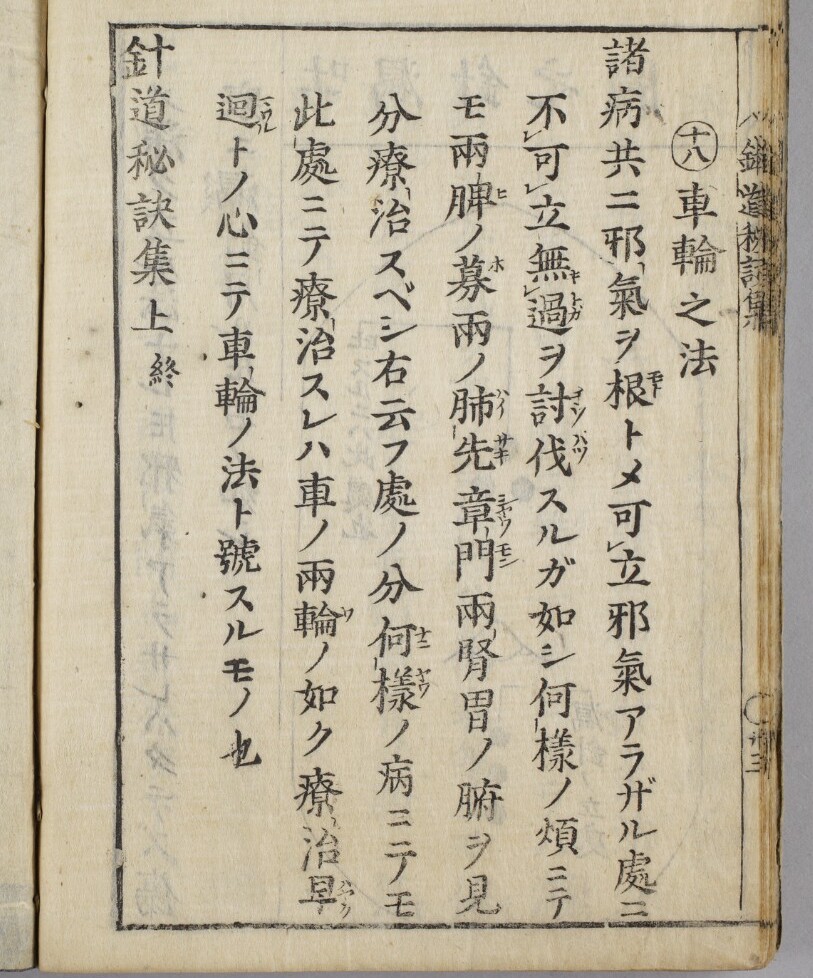 鍼道秘訣集
十八 車輪之法
諸病共ニ邪氣ヲ根トメ可レ立邪氣アラザル處ニ
不レ可レ立無レ過ヲ討伐スルガ如シ何樣ノ煩ニテ
モ兩脾ノ募兩ノ肺先章門兩腎胃ノ腑ヲ見
分療治スベシ右云フ處ノ分何樣ノ病ニテモ
此處ニテ療治スレハ車ノ兩輪ノ如ク療治早
迴トノ心ニテ車輪ノ法ト號スルモノ也
針道秘訣集上終